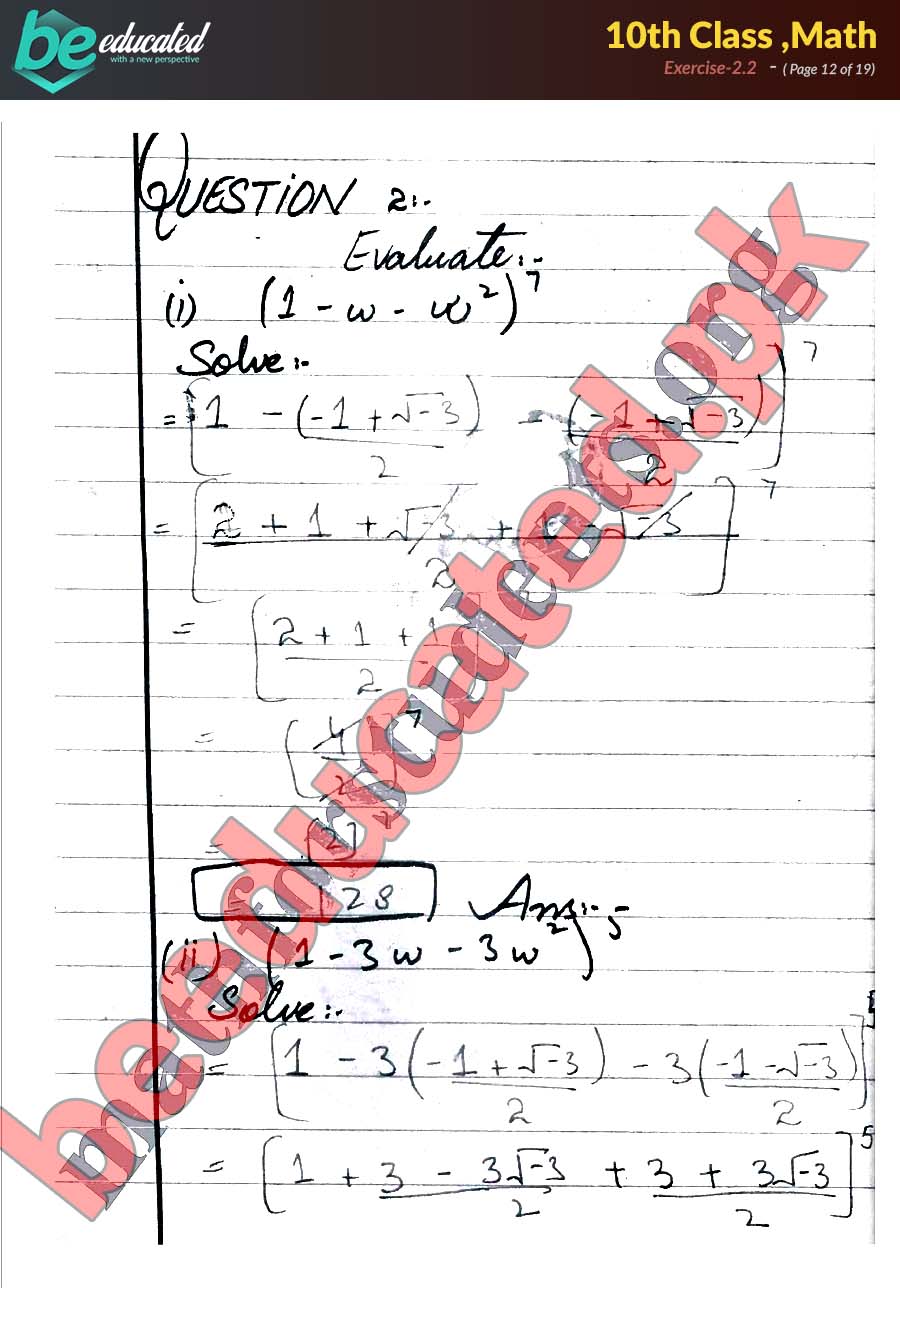 be educated
with a new perspective
10th Class ,Math
Exercise-2.2 - ( Page 12 of 19)
QUESTION 2:-
Evaluate:-
(i) (1 - ω - ω²)⁷
Solve:-
= [1 - (-1 + √-3)/2 - (-1 + √-3)/2]⁷
= [(2 + 1 + √-3 + 1 - √-3)/2]⁷
= [(2 + 1 + 1)/2]
= (4/2)⁷
= (2)⁷
128 Ans:-
(ii) (1 - 3ω - 3ω²)⁵
Solve:-
= [1 - 3((-1 + √-3)/2) - 3((-1 - √-3)/2)]⁵
= [1 + (3 - 3√-3)/2 + (3 + 3√-3)/2]⁵
beeducated.pk